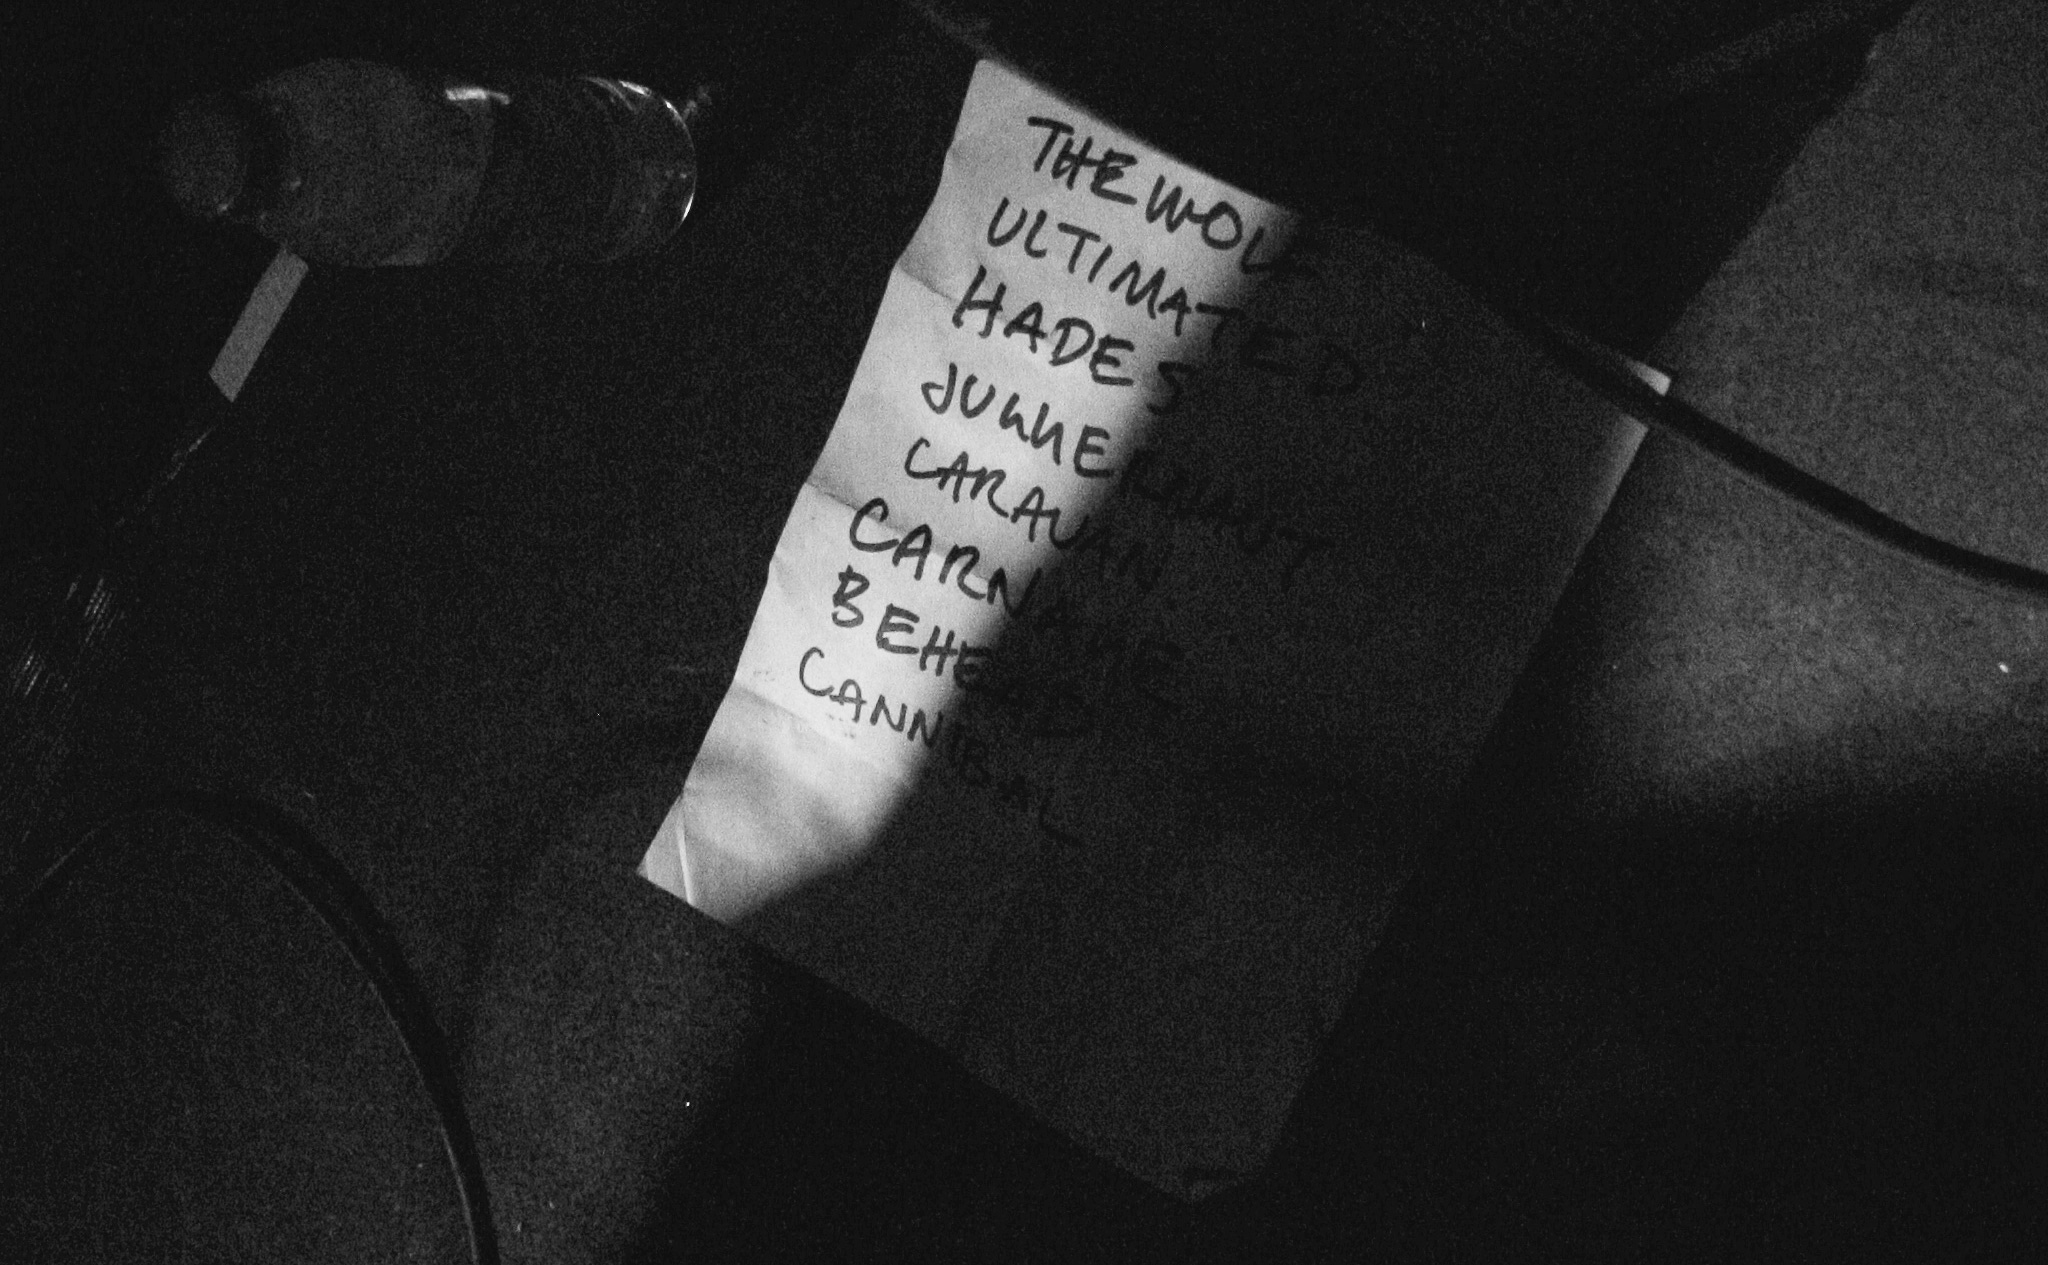 THE WOLF
ULTIMATED
HADES
JUGGERNAUT
CARAVAN
CARNAGE
BEHEAD
CANNIBAL